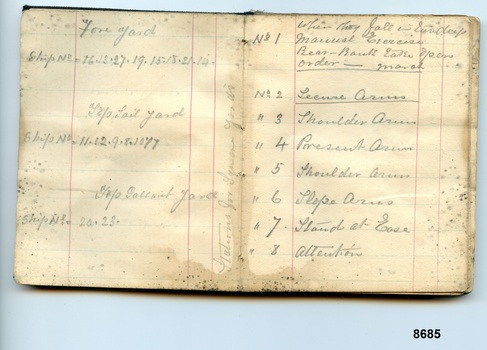 Fore Yard
Ship Nos. 16.12.27.19.15.18.21.14.
Top Sail Yard
Ship Nos. 11.12.9.8.10 & 7
Top Gallant Yard
Ship Nos. 20.23.
Stations for Square Yards
No 1 When they fall in
Manual Exercise
Rear Rank Take Open
order — march
No 2 Secure Arms
" 3 Shoulder Arms
" 4 Present Arms
" 5 Shoulder Arms
" 6 Slope Arms
" 7 Stand at Ease
" 8 Attention
8685